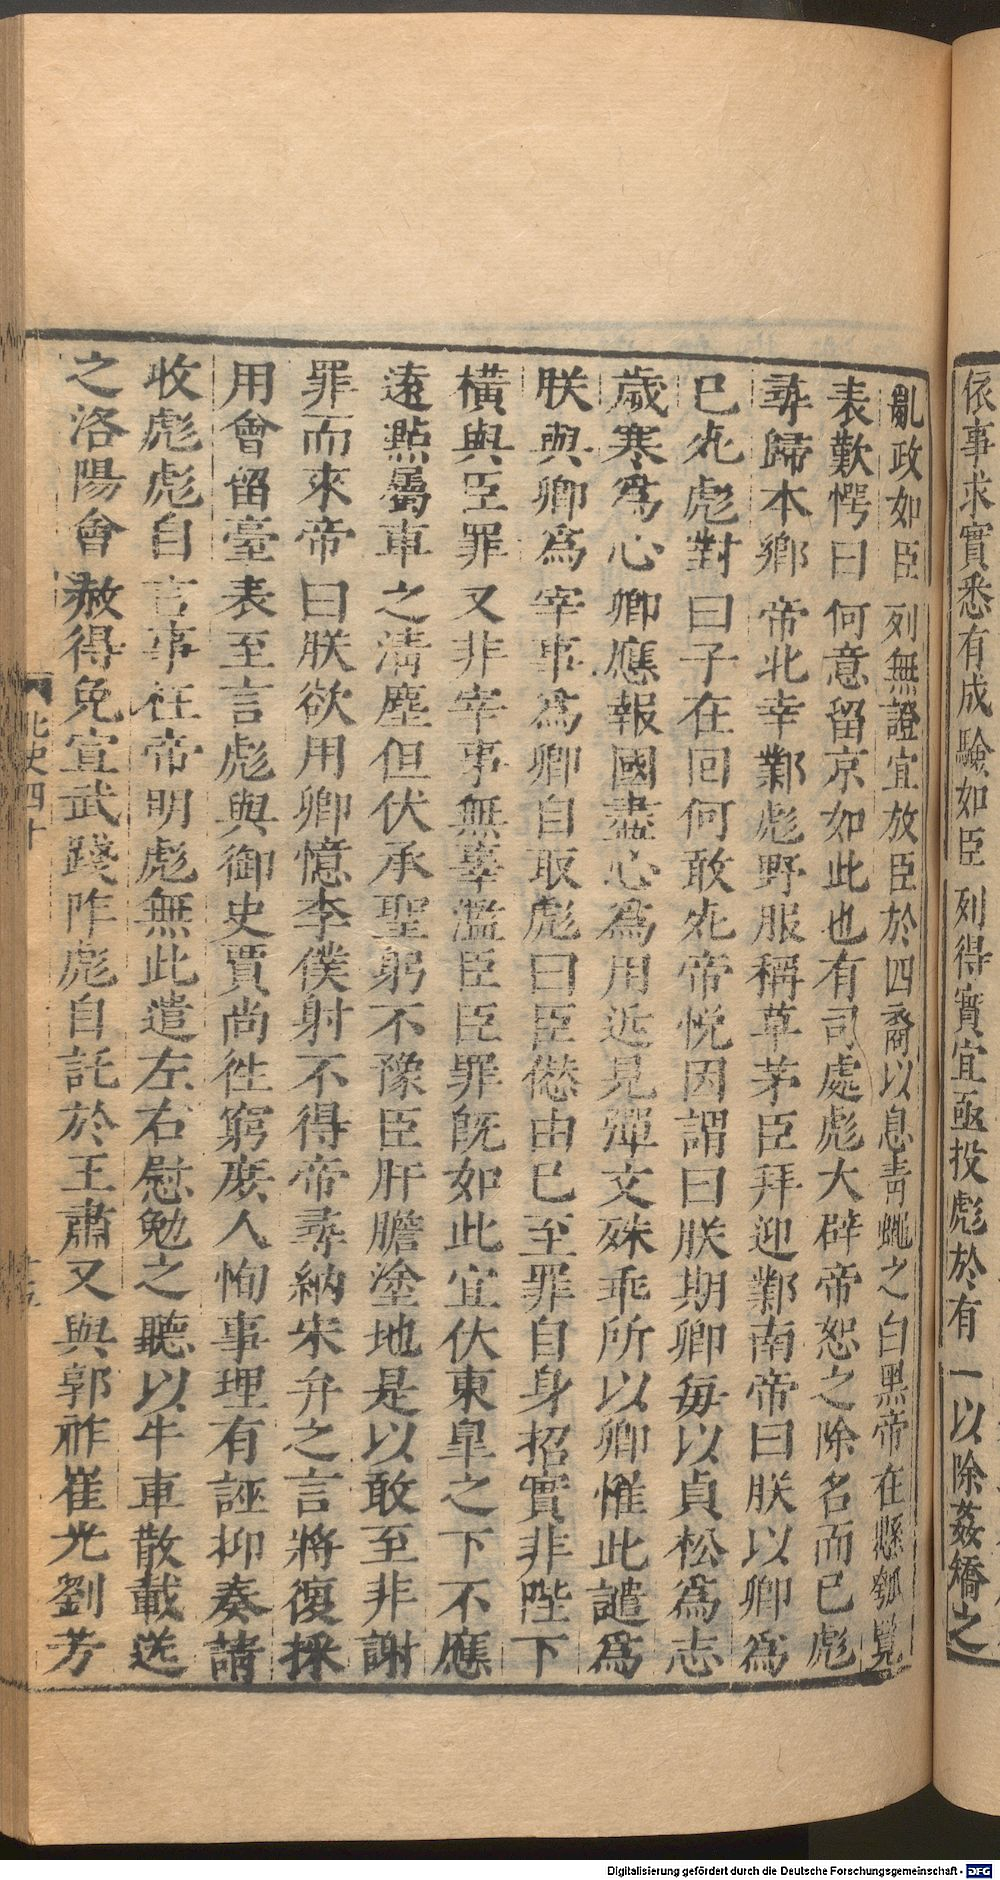 依事求實悉有成驗如臣列得實宜亟投彪於有一以除姦矯之
亂政如臣列無證宜放臣於四裔以息青蠅之白黑帝在懸瓠覽
表歎愕曰何意留京如此也有司處彪大辟帝恕之除名而已彪
尋歸本鄉帝北幸鄴彪野服稱草茅臣拜迎鄴南帝曰朕以卿為
已死彪對曰子在回何敢死帝悅因謂曰朕期卿每以貞松為志
歲寒為心卿應報國盡心為用近見彈文殊乖所以卿惟此譴為
朕與卿為宰事為卿自取彪曰臣愆由已至罪自身招實非陛下
橫與臣罪又非宰事無辜濫臣臣罪既如此宜伏東皐之下不應
遠點屬車之清塵但伏承聖躬不豫臣肝膽塗地是以敢至非謝
罪而來帝曰朕欲用卿憶李僕射不得帝尋納宋弁之言將復採
用會留臺表至言彪與御史賈尚徃窮庶人恂事理有誣抑奏請
收彪彪自言事枉帝明彪無此遣左右慰勉之聽以牛車散載送
之洛陽會赦得免宣武踐阼彪自託於王肅又與郭祚崔光劉芳
北史四十
Digitalisierung gefördert durch die Deutsche Forschungsgemeinschaft - DFG